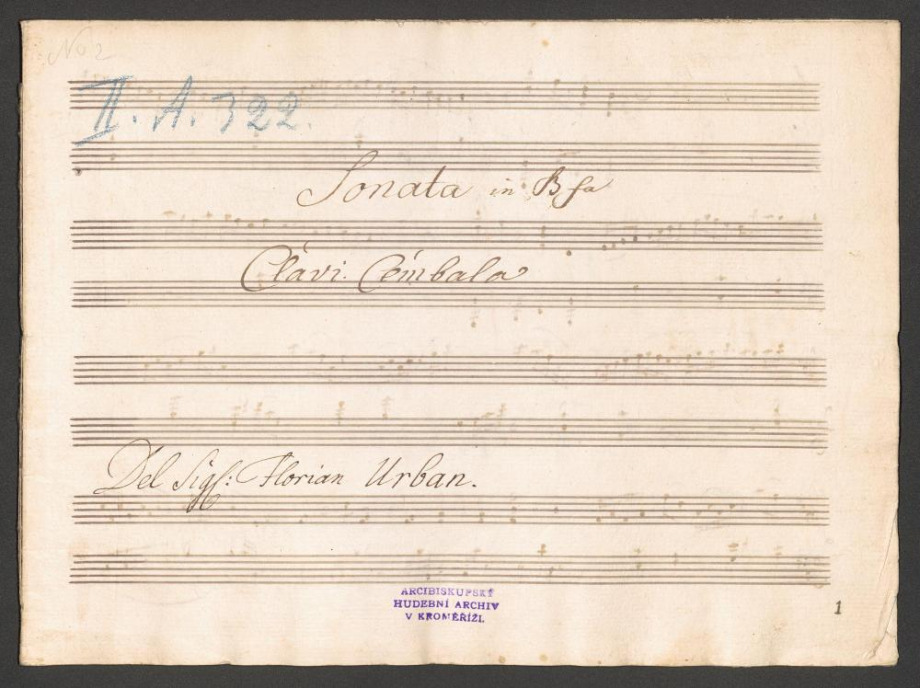 No 2
II. A. 322.
Sonata in B fa
Clavi Cembala
Del Sigl: Florian Urban.
ARCIBISKUPSKÝ
HUDEBNÍ ARCHIV
V KROMĚŘÍŽI.
1